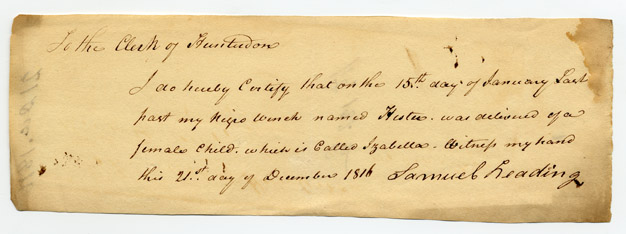 To the Clerk of Hunterdon
I do hereby Certify that on the 15th. day of January Last
past my Negro wench named Hester. was delivered of a
female Child. which is Called Izabella. Witness my hand
this 21st. day of December 1816 Samuel Leading